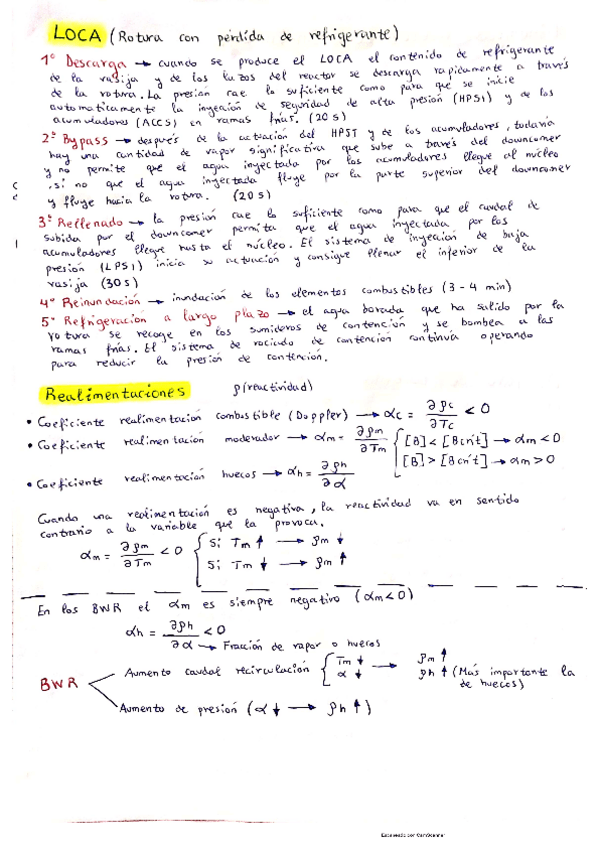 LOCA (Rotura con pérdida de refrigerante)
1º Descarga → cuando se produce el LOCA el contenido de refrigerante
de la vasija y de los lazos del reactor se descarga rapidamente a través
de la rotura. La presión cae lo suficiente como para que se inicie
automaticamente la inyección de seguridad de alta presión (HPSI) y de los
acumuladores (ACCS) en ramas frías. (20 s)
2º Bypass → después de la actuación del HPSI y de los acumuladores, todavía
hay una cantidad de vapor significativa que sube a través del downcomer
y no permite que el agua inyectada por los acumuladores llegue al núcleo
, si no que el agua inyectada fluye por la parte superior del downcomer
y fluye hacia la rotura. (20 s)
3º Rellenado → la presión cae lo suficiente como para que el caudal de
subida por el downcomer permita que el agua inyectada por los
acumuladores llegue hasta el núcleo. El sistema de inyección de baja
presión (LPSI) inicia su actuación y consigue llenar el inferior de la
vasija (30 s)
4º Reinundación → inundación de los elementos combustibles (3-4 min)
5º Refrigeración a largo plazo → el agua borada que ha salido por la
rotura se recoge en los sumideros de contención y se bombea a las
ramas frías. El sistema de rociado de contención continúa operando
para reducir la presión de contención.
Realimentaciones ρ(reactividad)
• Coeficiente realimentación combustible (Doppler) → αc = ∂ρc/∂Tc < 0
• Coeficiente realimentación moderador → αm = ∂ρm/∂Tm { [B] < [Bcrit] → αm < 0
[B] > [Bcrit] → αm > 0
• Coeficiente realimentación huecos → αh = ∂ρh/∂α
Cuando una realimentación es negativa, la reactividad va en sentido
contrario a la variable que la provoca.
αm = ∂ρm/∂Tm < 0 { Si Tm ↑ → ρm ↓
Si Tm ↓ → ρm ↑
En los BWR el αm es siempre negativo (αm < 0)
αh = ∂ρh/∂α < 0
→ Fracción de vapor o huecos
BWR
Aumento caudal recirculación { Tm ↓ → ρm ↑
α ↓ ρh ↑ (Más importante la
de huecos)
Aumento de presión (α ↓ → ρh ↑)
Escaneado con CamScanner